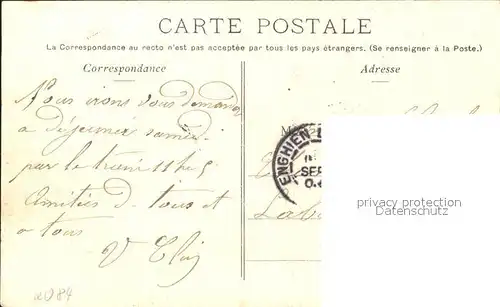 CARTE POSTALE
La Correspondance au recto n'est pas acceptée par tous les pays étrangers. (Se renseigner à la Poste.)
Correspondance
Adresse
Nous irons vous demander
a déjeuner samedi
par le train 11 h 5
Amitiés d. tous et
a tous
V
M
ENGHIEN-
SEP
privacy protection
Datenschutz
a084